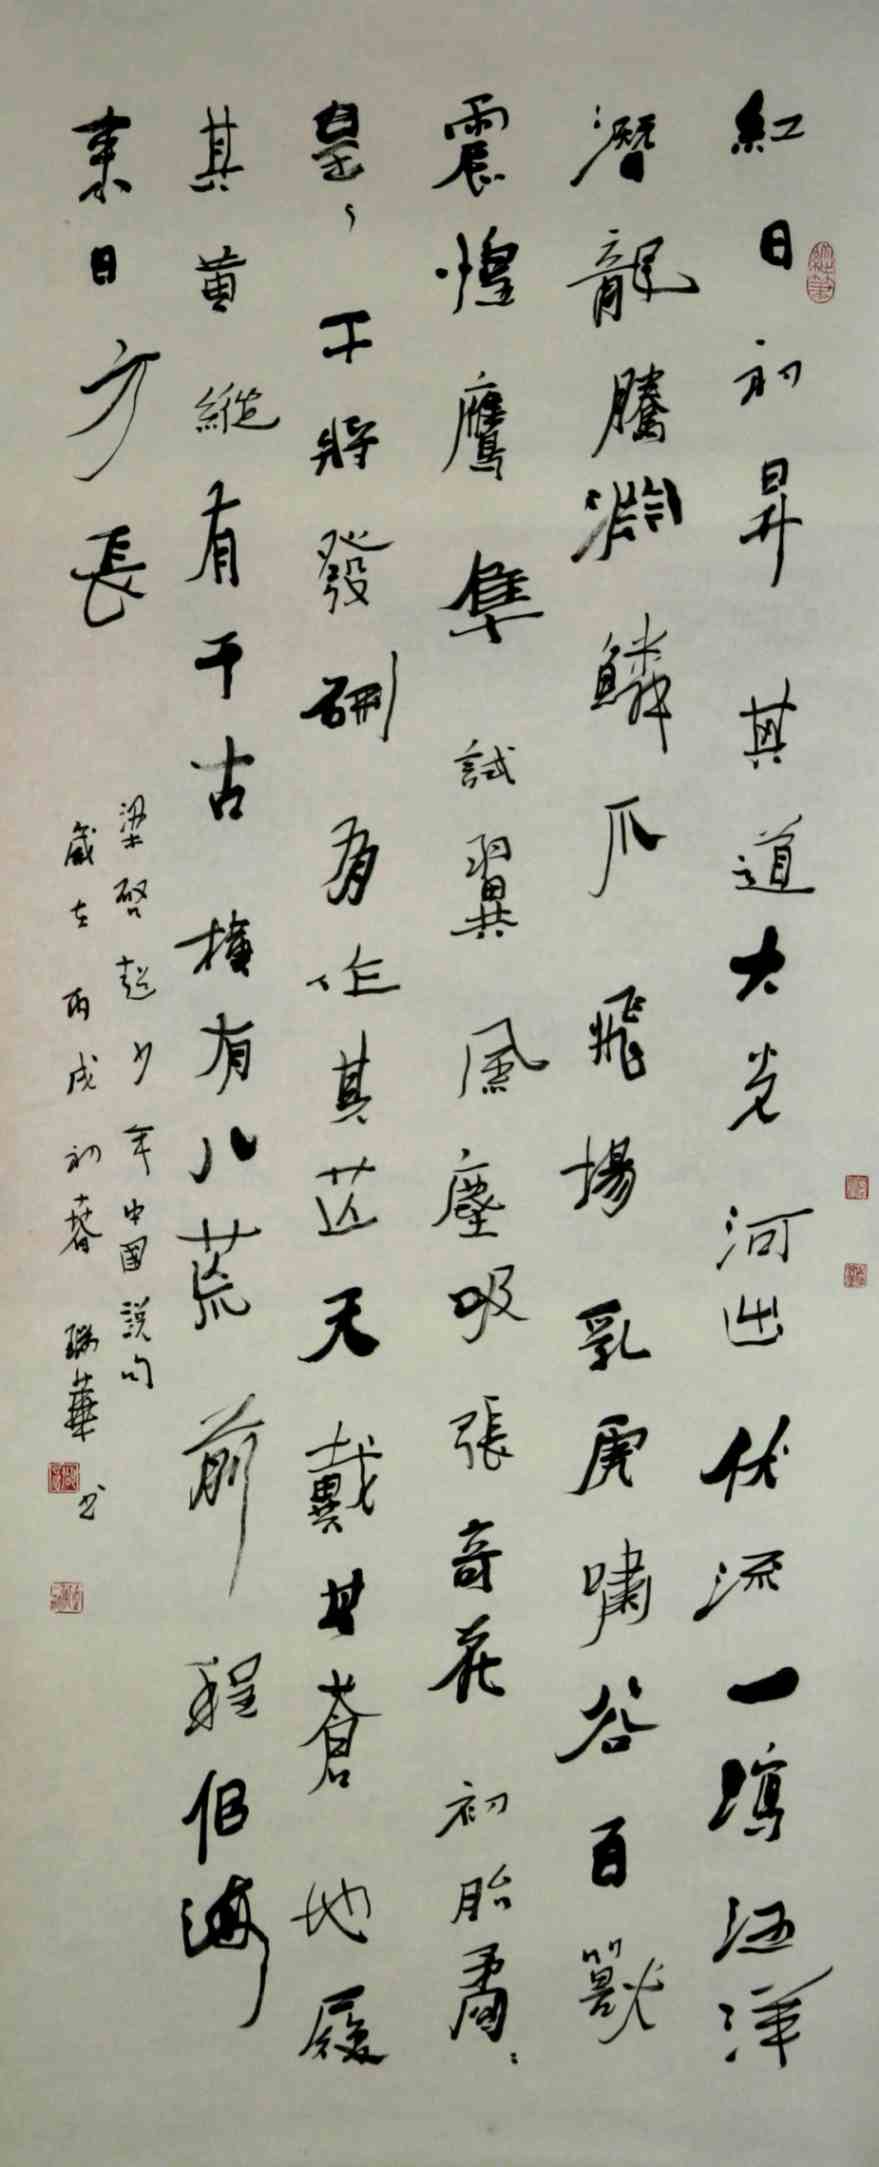 紅日初昇其道大光河出伏流一瀉汪洋
潛龍騰淵鱗爪飛揚乳虎嘯谷百獸
震惶鷹隼試翼風塵吸張奇花初胎矞〻
皇〻干將發硎有作其芒天戴其蒼地履
其黃縱有千古橫有八荒前程侣海
來日方長
梁啓超少年中國説句
歲在丙戌初春瑞華书